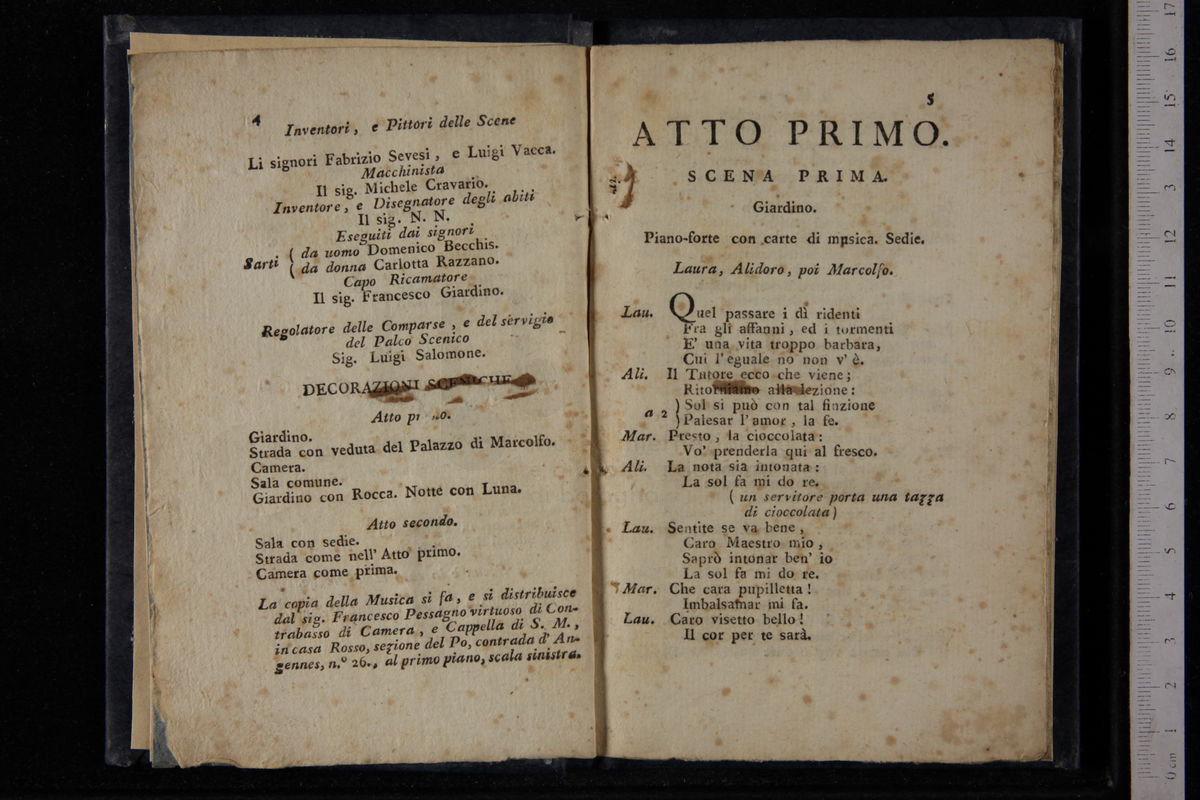 4
Inventori, e Pittori delle Scene
Li signori Fabrizio Sevesi, e Luigi Vacca.
Macchinista
Il sig. Michele Cravario.
Inventore, e Disegnatore degli abiti
Il sig. N. N.
Eseguiti dai signori
Sarti { da uomo Domenico Becchis.
{ da donna Carlotta Razzano.
Capo Ricamatore
Il sig. Francesco Giardino.
Regolatore delle Comparse, e del servigio
del Palco Scenico
Sig. Luigi Salomone.
DECORAZIONI SCENICHE
Atto primo.
Giardino.
Strada con veduta del Palazzo di Marcolfo.
Camera.
Sala comune.
Giardino con Rocca. Notte con Luna.
Atto secondo.
Sala con sedie.
Strada come nell' Atto primo.
Camera come prima.
La copia della Musica si fa, e si distribuisce
dal sig. Francesco Pessagno virtuoso di Con-
trabasso di Camera, e Cappella di S. M.,
in casa Rosso, sezione del Po, contrada d' An-
gennes, n.º 26., al primo piano, scala sinistra.
5
ATTO PRIMO.
SCENA PRIMA.
Giardino.
Piano-forte con carte di musica. Sedie.
Laura, Alidoro, poi Marcolfo.
Lau. Quel passare i dì ridenti
Fra gli affanni, ed i tormenti
E' una vita troppo barbara,
Cui l'eguale no non v' è.
Ali. Il Tutore ecco che viene;
Ritorniamo alla lezione:
a 2 ) Sol si può con tal finzione
) Palesar l'amor, la fe.
Mar. Presto, la cioccolata:
Vo' prenderla qui al fresco.
Ali. La nota sia intonata:
La sol fa mi do re.
( un servitore porta una tazza
di cioccolata)
Lau. Sentite se va bene,
Caro Maestro mio,
Saprò intonar ben' io
La sol fa mi do re.
Mar. Che cara pupilletta!
Imbalsamar mi fa.
Lau. Caro visetto bello!
Il cor per te sarà.